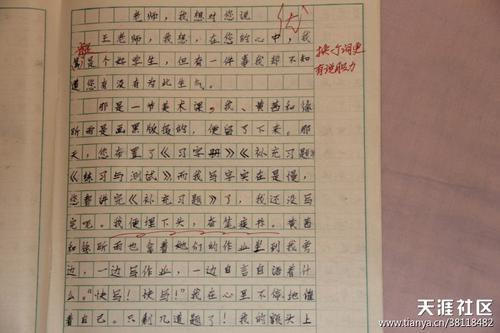 老师，我想对您说 优
王老师，我想，在您的心中，我
是个好学生，但有一件事我却不知
道您有没有为此生气。
那是一节美术课。我、黄茜和徐
斯雨是画黑版报的，便留了下来。那
天，您布置了《习字册》《补充习题》
《练习与测试》，而我写字实在是慢，
您都讲完《补充习题》了，我还没写
完呢。我便埋下头，奋笔疾书。黄茜
和徐斯雨也拿着她们的作业坐到我旁
边，一边写作业，一边自言自语着什
么。“快写！快写！”我在心里不停地催
着自己。只剩几道题了！我的额头上
换个词更
有说服力
天涯社区
www.tianya.cn/38118482